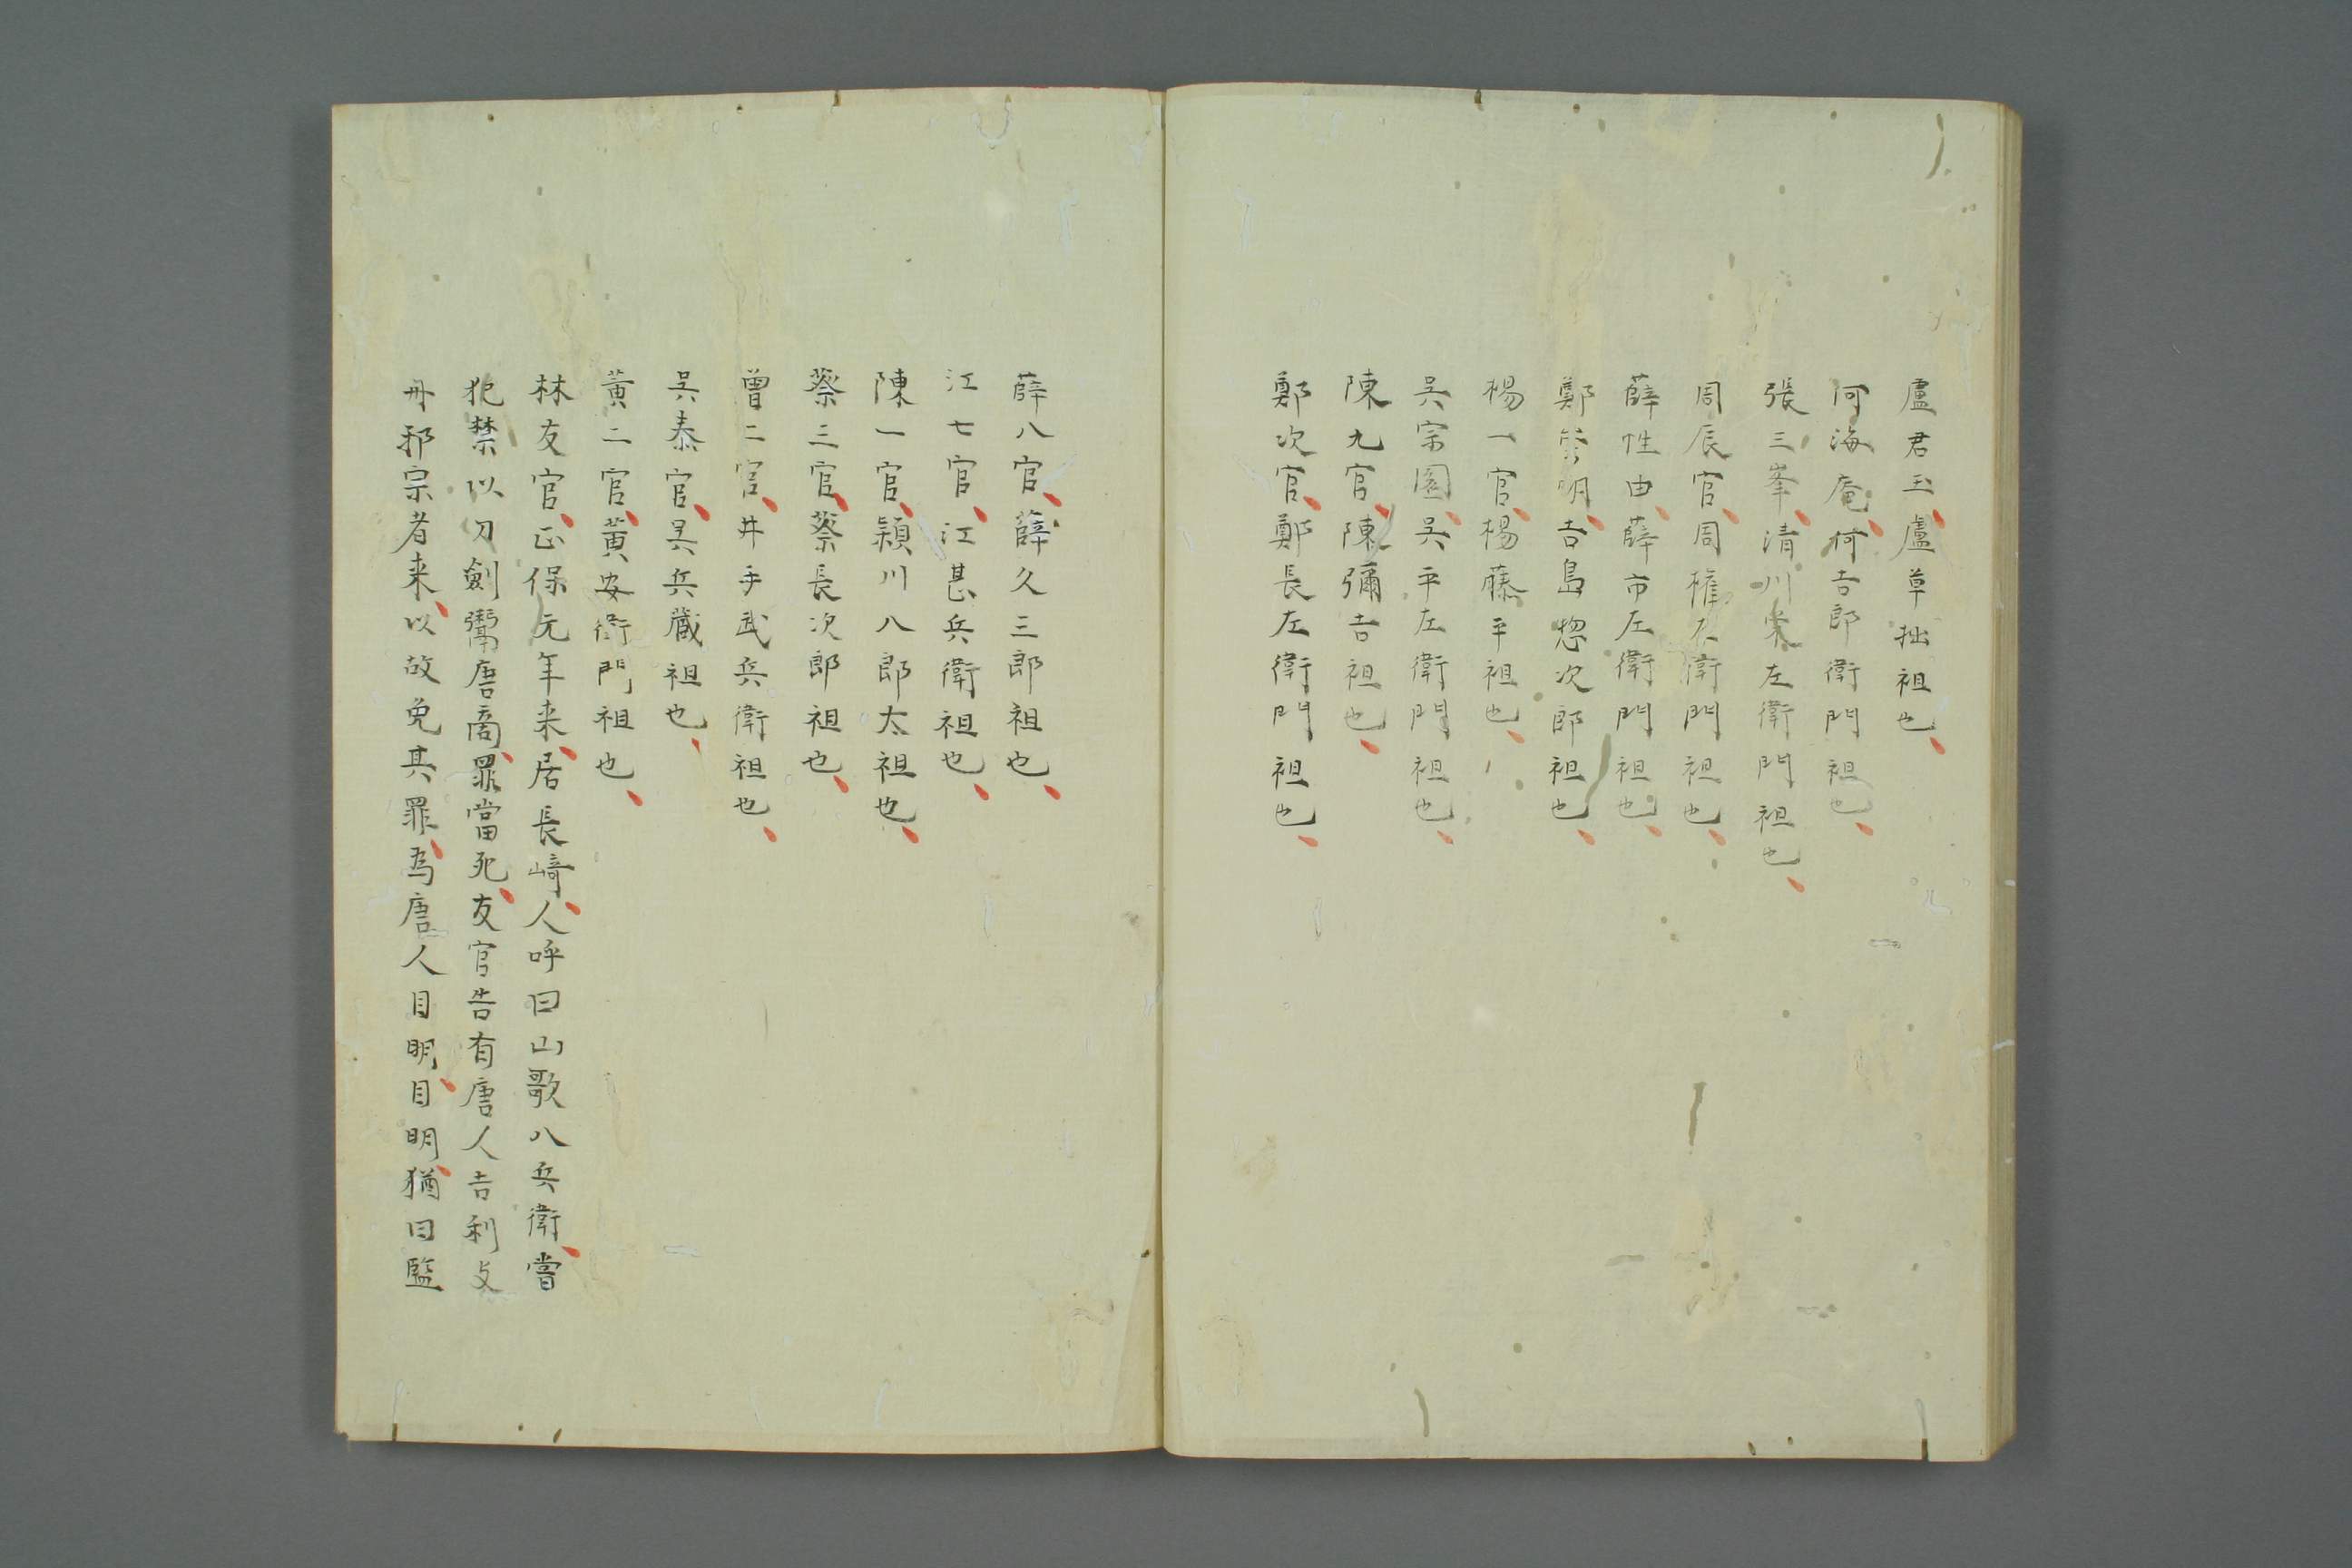 盧君玉、盧草拙祖也、
何海庵、何吉郎衛門祖也、
張三峯、清川栄左衛門祖也、
周辰官、周権右衛門祖也、
薛性由、薛市左衛門祖也、
鄭宗明、吉島惣次郎祖也、
楊一官、楊藤平祖也、
呉宗園、呉平左衛門祖也、
陳九官、陳彌吉祖也、
鄭次官、鄭長左衛門祖也、
薛八官、薛久三郎祖也、
江七官、江甚兵衛祖也、
陳一官、頴川八郎太祖也、
蔡三官、蔡長次郎祖也、
曽二官、井手武兵衛祖也、
呉泰官、呉兵蔵祖也、
黄二官、黄安衛門祖也、
林友官、正保元年来、居長﨑、人呼曰山歌八兵衛、嘗
犯禁以刀劍鬻唐商、罪當死、友官告有唐人吉利支
丹邪宗者来、以故免其罪、為唐人目明、目明、猶曰監